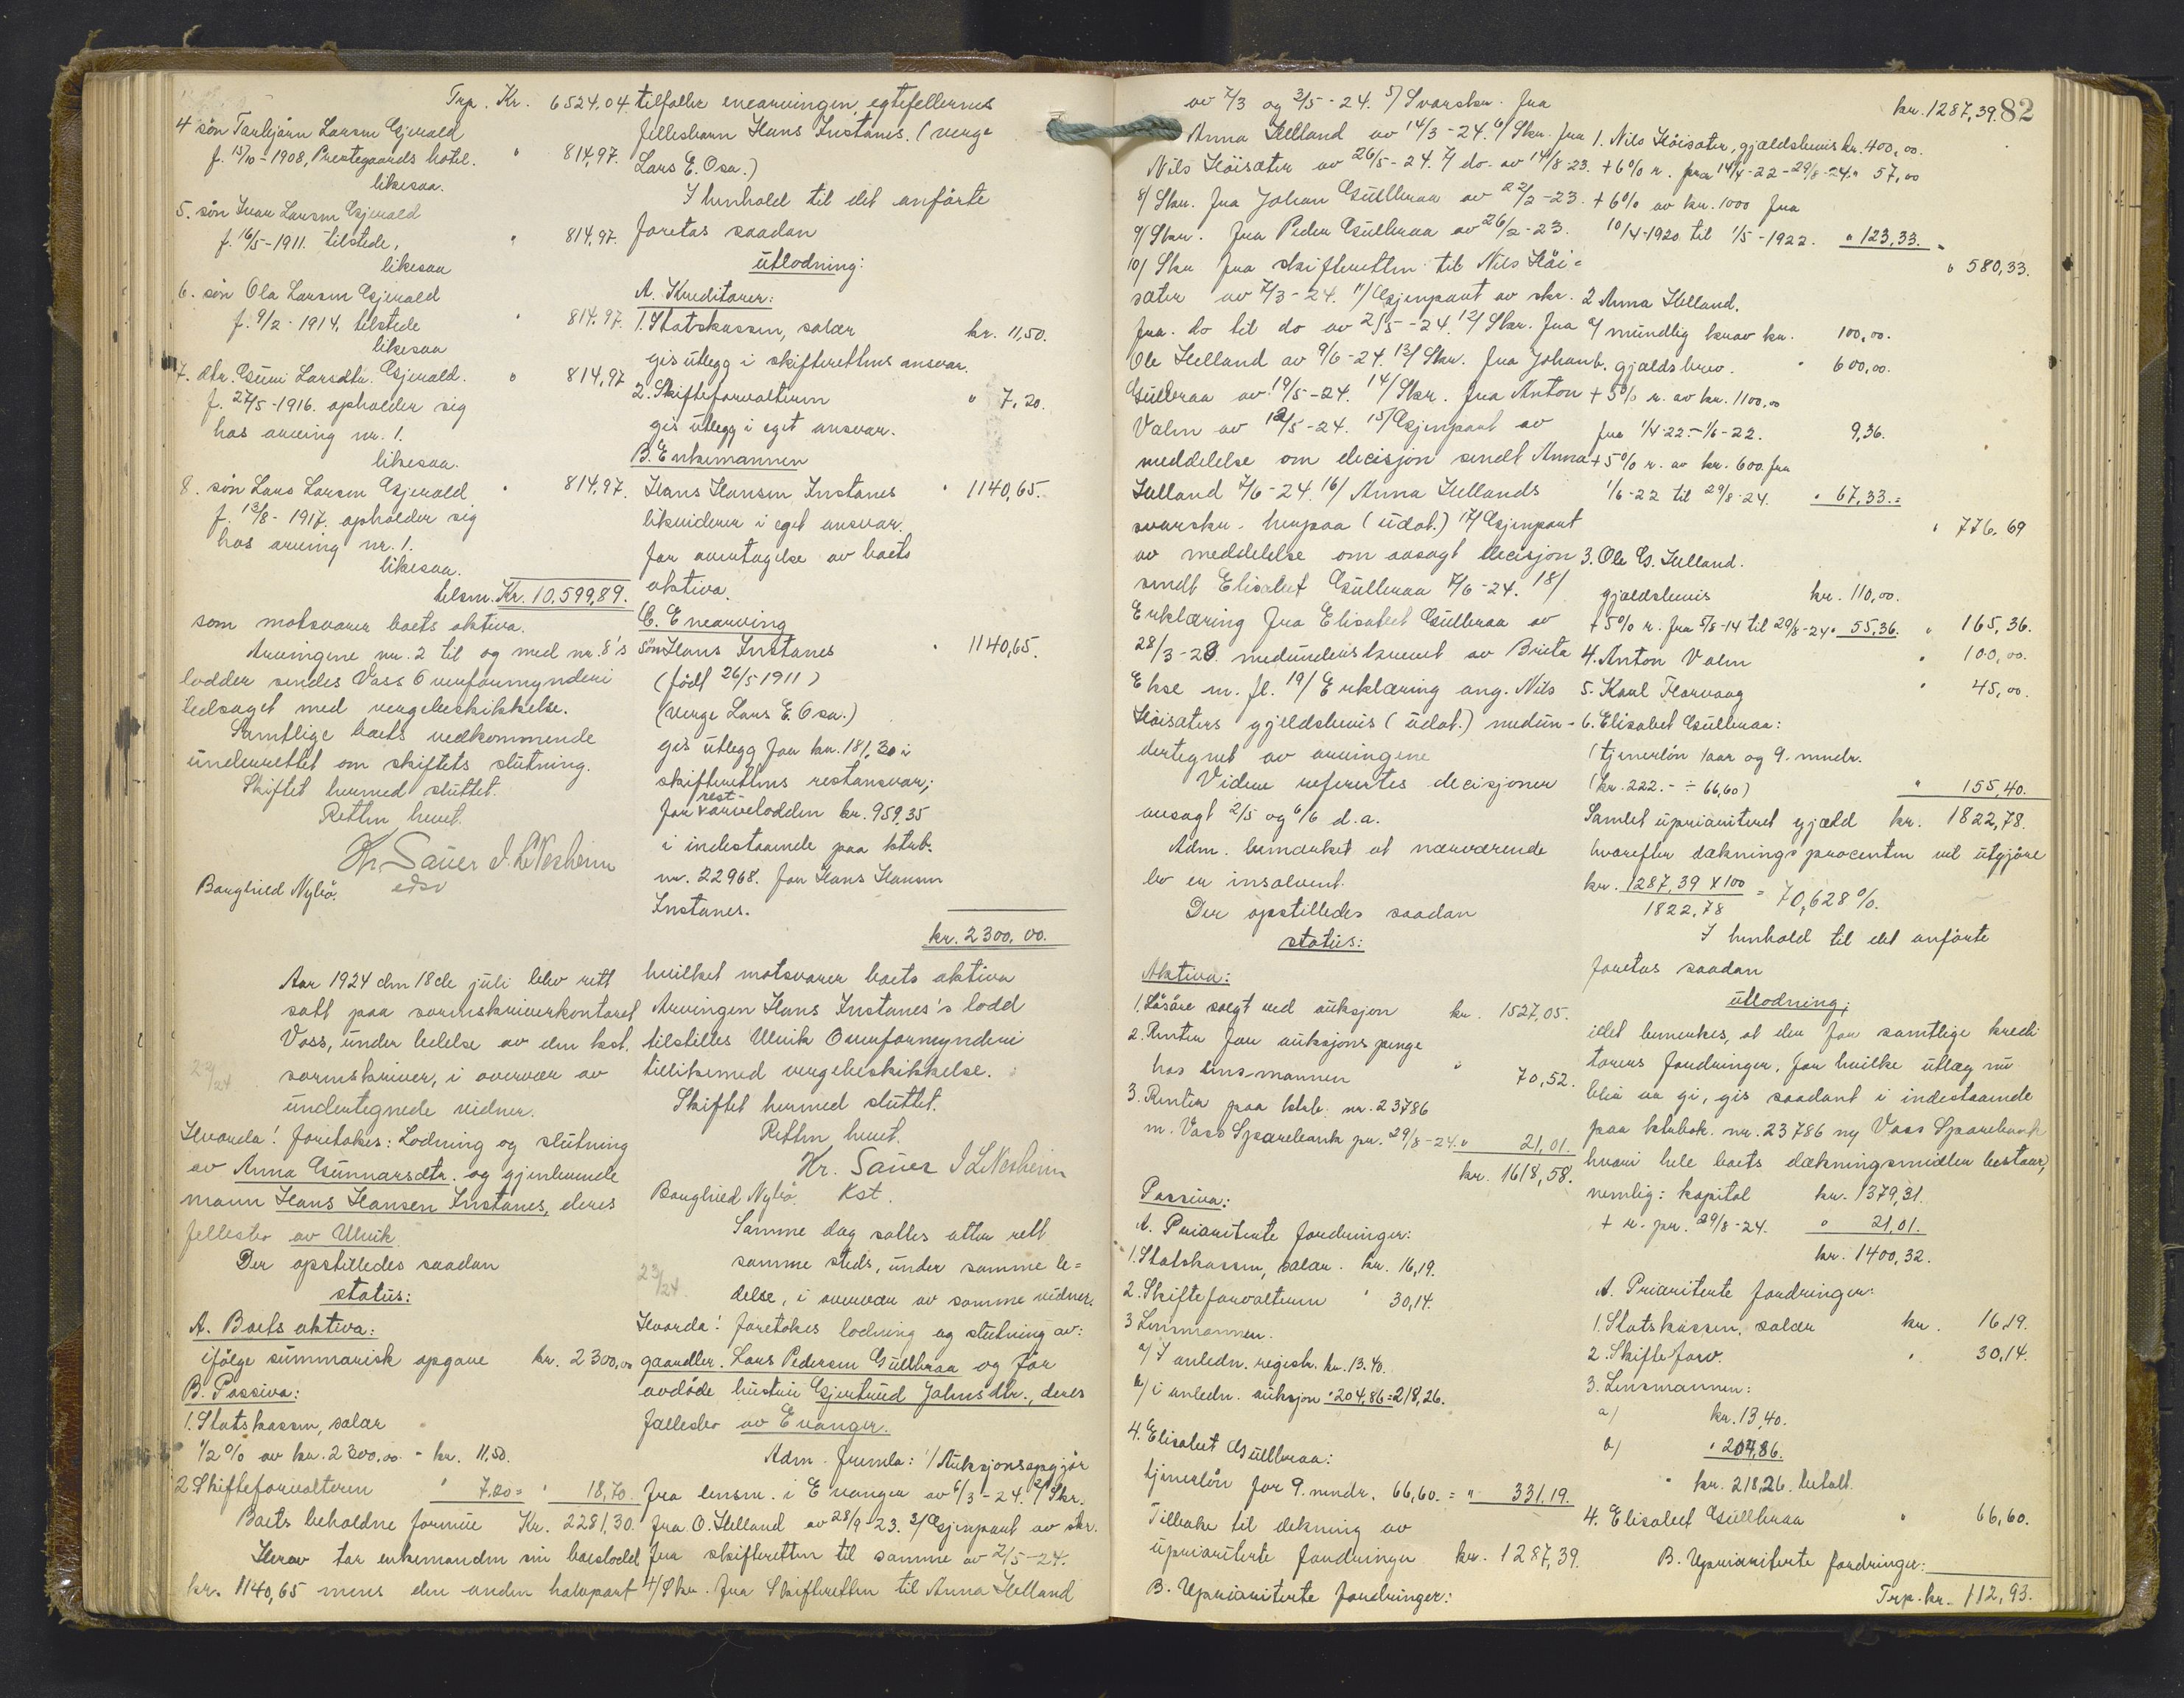 Trp. Kr. 6524.04
4 søn Torbjørn Larsen Gjerald
f. 15/10-1908, Prestegaards hotel. " 814,97.
likesaa.
5. søn Ivar Larsen Gjerald
f. 16/5-1911. tilstede, " 814,97.
likesaa
6. søn Ola Larsen Gjerald
f. 9/2-1914, tilstede " 814,97.
likesaa
7. dtr. Guri Larsdtr. Gjerald. " 814,97
f. 27/5-1916. opholder sig
hos arving nr. 1.
likesaa.
8. søn Lars Larsen Gjerald " 814,97.
f. 13/8-1917. opholder sig
hos arving nr. 1.
likesaa.
tilsm. Kr. 10.599,89.
som motsvarer boets aktiva.
Arvingene nr. 2 til og med nr. 8's
lodder sendes Voss Overformynderi
ledsaget med vergebeskikkelse.
Samtlige boets vedkommende
underrettet om skiftets slutning.
Skiftet hermed sluttet.
Retten hevet.
Kr. Sauer J. L. Nesheim
edsv
Borghild Nybø.
Aar 1924 den 18de juli blev rett
satt paa sorenskriverkontoret
Voss, under ledelse av den kst.
22/24 sorenskriver, i overvær av
undertegnede vidner.
Hvorda! foretokes: Lodning og slutning
av Anna Gunnarsdtr. og gjenlevende
mann Hans Hansen Instanes, deres
fellesbo av Ulvik
Der opstilledes saadan
status:
A. Boets aktiva:
ifølge summarisk opgave kr. 2300,00
B. Passiva:
1. Statskassen, salær
1/2 % av kr. 2300,00 = kr. 11,50.
2 Skifteforvalteren " 7.20 = " 18,70.
Boets beholdne formue Kr. 2281,30.
Herav tar enkemanden sin boeslodd
kr. 1140,65 mens den anden halvpart
tilfaller enearvingen, egtefellernes
fellesbarn Hans Instanes. (verge
Lars E. Osa.)
I henhold til det anførte
foretas saadan
utlodning:
A. Kreditorer:
1. Statskassen, salær kr. 11,50.
gis utlegg i skifterettens ansvar.
2. Skifteforvalteren " 7,20.
gis utlegg i eget ansvar.
B. Enkemannen
Hans Hansen Instanes " 1140,65.
likviderer i eget ansvar
for overtagelse av boets
aktiva.
C. Enearving
søn Hans Instanes " 1140,65.
(født 26/5 1911)
(verge Lars E. Osa.)
gis utlegg for kr. 181,30 i
skifterettens restansvar;
for rest-arvelodden kr. 959,35
i indestaaende paa ktrb.
nr. 22968. for Hans Hansen
Instanes.
kr. 2300,00.
hvilket motsvarer boets aktiva
Arvingen Hans Instanes's lodd
tilstilles Ulvik Overformynderi
tillikemed vergebeskikkelse.
Skiftet hermed sluttet.
Retten hevet.
Kr. Sauer J L Nesheim
Borghild Nybø. Kst.
Samme dag sattes atter rett
samme steds, under samme le=
23/24 delse, i overvær av samme vidner.
Hvorda! foretokes lodning og slutning av:
gaardbr. Lars Pedersen Gullbraa og før
avdøde hustru Gjertrud Johnsdtr., deres
fællesbo av Evanger.
Adm. fremla: 1/ Auksjonsopgjør
fra lensm. i Evanger av 6/3-24. 2/ Skr.
fra O. Helland av 28/9-23. 3/ Gjenpart av skr.
fra skifteretten til samme av 2/5-24.
4/ Skr. fra Skifteretten til Anna Helland
82
av 7/3 og 3/5-24. 5/ Svarskr. fra
Anna Helland av 14/3-24. 6/ Skr. fra
Nils Høisæter av 26/5-24. 7/ do- av 14/8-23.
8/ Skr. fra Johan Gullbraa av 22/2-23.
9/ Skr. fra Peder Gullbraa av 26/2-23.
10/ Skr fra skifteretten til Nils Høi=
sæter av 7/3-24. 11/ Gjenpart av skr.
fra. do til do av 2/5-24. 12/ Skr. fra
Ole Helland av 9/6-24. 13/ Skr. fra Johan
Gullbraa av 19/5-24. 14/ Skr. fra Anton
Valm av 12/5-24. 15/ Gjenpart av
meddelelse om decisjon sendt Anna
Helland 7/6-24. 16/ Anna Hellands
svarskr. herpaa (udat.) 17/ Gjenpart
av meddelelse om avsagt decisjon
sendt Elisabet Gullbraa 7/6-24. 18/
Erklæring fra Elisabet Gullbraa av
28/3-23. medunderskrevet av Brita
Ekse m. fl. 19/ Erklæring ang. Nils
Høisæters gjeldsbevis (udat.) medun-
dertegnet av arvingene
Videre refereertes decisjoner
avsagt 2/5 og 6/6 d.a.
Adm. bemerket at nærværende
bo er insolvent.
Der opstilledes saadan
status:
Aktiva:
1. Løsøre solgt ved auksjon kr. 1527,05.
2. Renter for auksjonspenge
hos lensmannen " 70,52.
3. Renter paa ktrb. nr. 23786
m. Voss Sparebank pr. 29/8-24. " 21,01.
kr. 1618,58.
Passiva:
A. Prioriterte fordringer:
1. Statskassen, salær. kr. 16,19.
2. Skifteforvalteren " 30,14.
3 Lensmannen.
a/ I anledn. registr. kr. 13.40.
b/ i anledn. auksjon " 204,86 = 218,26.
4. Elisabet Gullbraa:
tjenerløn for 9. mndr. 66,60. = " 331.19.
Tilbake til dekning av
uprioriterte fordringer kr. 1287,39.
B. Uprioriterte fordringer:
kr. 1287,39.
1. Nils Høisæter, gjældsbevis kr. 400,00.
+ 6% r. fra 14/4-22-29/8-24. " 57,00
+ 6% av kr. 1000 fra
10/4-1920 til 1/5-1922. " 123,33. =
" 580,33.
2 Anna Helland.
a/ mundlig krav kr. 100,00.
b. gjældsbrev. " 600,00.
+ 5% r. av kr. 1100,00
fra 1/4-22-1/6-22. 9,36.
+ 5% r. av kr. 600 fra
1/6-22 til 29/8-24. " 67,33. =
" 776,69
3. Ole G. Helland.
gjældsbevis kr. 110,00.
+ 5% r. fra 5/8-14 til 29/8-24 " 55,36. " 165,36.
4. Anton Valm " 100,00.
5. Karl Horvang " 45,00.
6. Elisabet Gullbraa:
(tjenerløn 1 aar og 9. mndr.
(kr. 222.- ÷ 66,60) " 155,40.
Samlet uprioritert gjæld kr. 1822,78.
hvorefter dækningsprocenten vil utgjøre
kr. 1287,39 x 100 / 1822,78 = 70,628%.
I henhold til det anførte
foretas saadan
utlodning;
idet bemerkes, at der for samtlige kredi
torers fordringer, for hvilke utlæg nu
blir aa gi, gis saadant i indestaaende
paa ktrbok. nr. 23786 ny Voss Sparebank
hvori hele boets dækningsmidler bestaar,
nemlig: kapital kr. 1379,31.
+ r. pr. 29/8-24. " 21,01.
kr. 1400,32.
A. Prioriterte fordringer:
1. Statskassen, salær kr. 16,19.
2. Skifteforv. " 30,14.
3. Lensmannen:
a/ kr. 13,40.
b/ " 204,86.
" kr. 218,26. betalt.
4. Elisabet Gullbraa " 66,60.
B. Uprioriterte fordringer:
Trp. kr. 112,93.